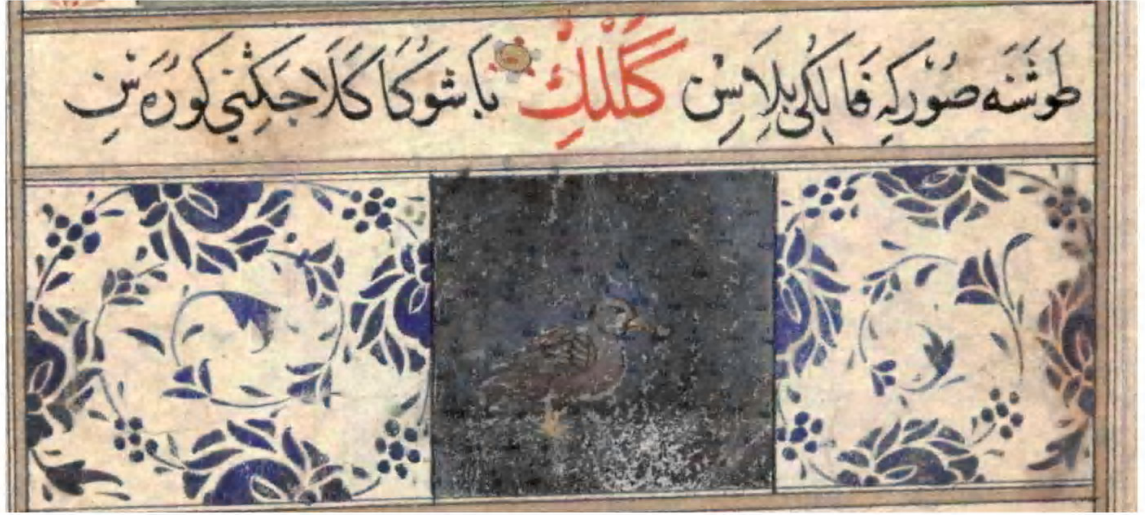 طَوشَنَه صُوْركِه فَالِكُى بِلاَسِنْ كَكْلِكْ بَاشُوكَا كَلاَجَكِنِي كُورَه سِنْ